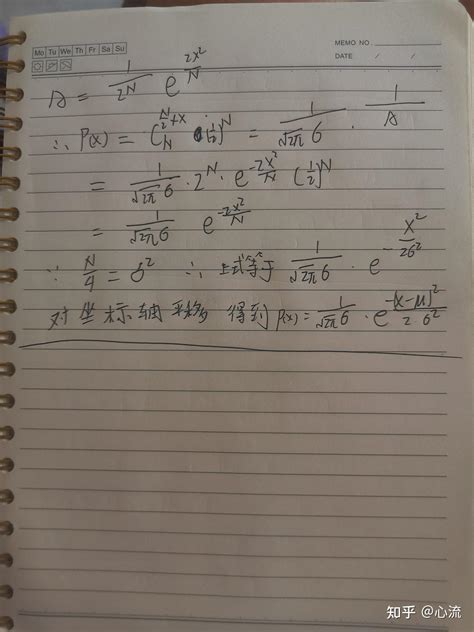 Mo Tu We Th Fr Sa Su
MEMO NO.
DATE / /
A = 1/2^N e^(2x²/N)
∴ P(x) = C_N^(N/2+x) (1/2)^N = 1/(√2π 6) · 1/A
= 1/(√2π 6) · 2^N · e^(-2x²/N) (1/2)^N
= 1/(√2π 6) e^(-2x²/N)
∵ N/4 = σ² ∴ 上式等于 1/(√2π 6) · e^(-x²/26²)
对坐标轴平移 得到 P(x) = 1/(√2π 6) · e^(-(x-μ)²/2 6²)
知乎 @心流